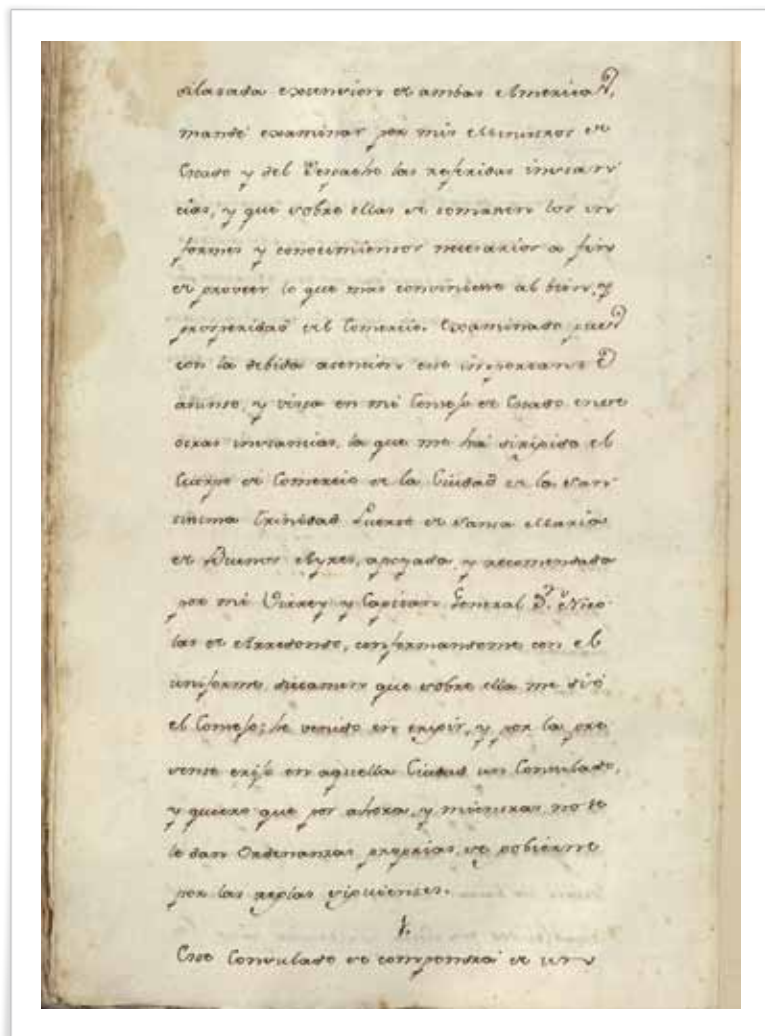 dilatada extension de ambas Americas,
mandé examinar por mis Ministros de
Estado y del Despacho las referidas instan
cias, y que sobre ellas se tomasen los in
formes y conocimientos necesarios a fin
de proveer lo que mas conviniese al bien, y
prosperidad del Comercio. Examinado pues
con la debida atencion este importante
asunto, y vista en mi Consejo de Estado entre
otras instancias, la que me há dirigido el
Cuerpo de Comercio de la Ciudad de la San
tisima Trinidad Puerto de Santa Maria
de Buenos Ayres, apoyada, y recomendada
por mi Virrey y Capitan General Dn. Nico
las de Arredondo, conformandome con el
uniforme dictamen que sobre ella me dió
el Consejo; he venido en erigir, y por la pre
sente erijo en aquella Ciudad un Consulado,
y quiero que por ahora, y mientras no se
le dan Ordenanzas proprias, se gobierne
por las reglas siguientes.
1.
Este Consulado se compondrá de un